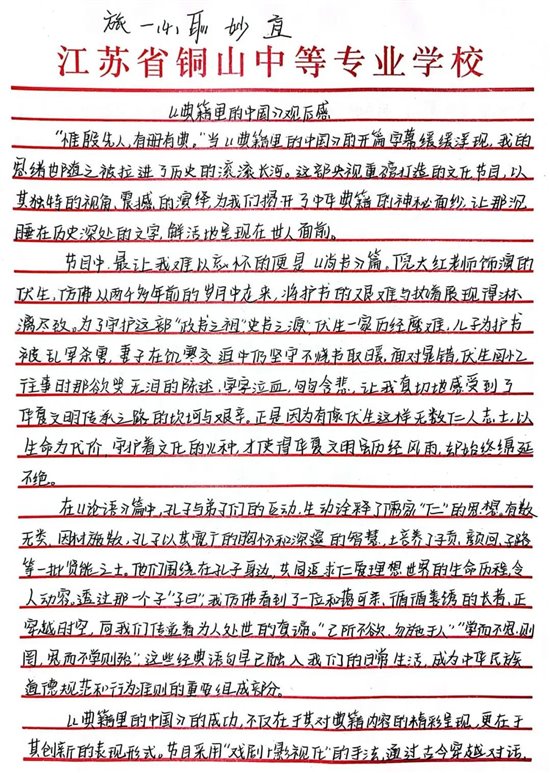 旅一(4) 耿妙直
江苏省铜山中等专业学校
《典籍里的中国》观后感
“惟殷先人,有册有典。”当《典籍里的中国》的开篇字幕缓缓呈现,我的
思绪也随之被拉进了历史的滚滚长河。这部央视重磅打造的文化节目,以
其独特的视角、震撼的演绎,为我们揭开了中华典籍的神秘面纱,让那沉
睡在历史深处的文字,鲜活地呈现在世人面前。
节目中,最让我难以忘怀的便是《尚书》篇。倪大红老师饰演的
伏生,仿佛从两千多年前的岁月中走来,将护书的艰难与执着展现得淋
漓尽致。为了守护这部“政书之祖”“史书之源”,伏生一家历经磨难,儿子为护书
被乱军杀害,妻子在饥寒交迫中仍坚守不烧书取暖,面对晁错,伏生回忆
往事时那欲哭无泪的陈述,字字泣血,句句含悲,让我真切地感受到了
华夏文明传承之路的坎坷与艰辛。正是因为有像伏生这样无数仁人志士,以
生命为代价,守护着文化的火种,才使得华夏文明虽历经风雨,却始终绵延
不绝。
在《论语》篇中,孔子与弟子们的互动,生动诠释了儒家“仁”的思想。有教
无类、因材施教,孔子以其宽广的胸怀和深邃的智慧,培养了子贡、颜回、子路
等一批贤能之士。他们围绕在孔子身边,共同追求仁爱理想世界的生命历程,令
人动容。透过那一个个“子曰”,我仿佛看到了一位和蔼可亲、循循善诱的长者,正
穿越时空,向我们传递着为人处世的真谛。“己所不欲,勿施于人”“学而不思则
罔,思而不学则殆”,这些经典语句早已融入我们的日常生活,成为中华民族
道德规范和行为准则的重要组成部分。
《典籍里的中国》的成功,不仅在于其对典籍内容的精彩呈现,更在于
其创新的表现形式。节目采用“戏剧+影视化”的手法,通过古今穿越对话、